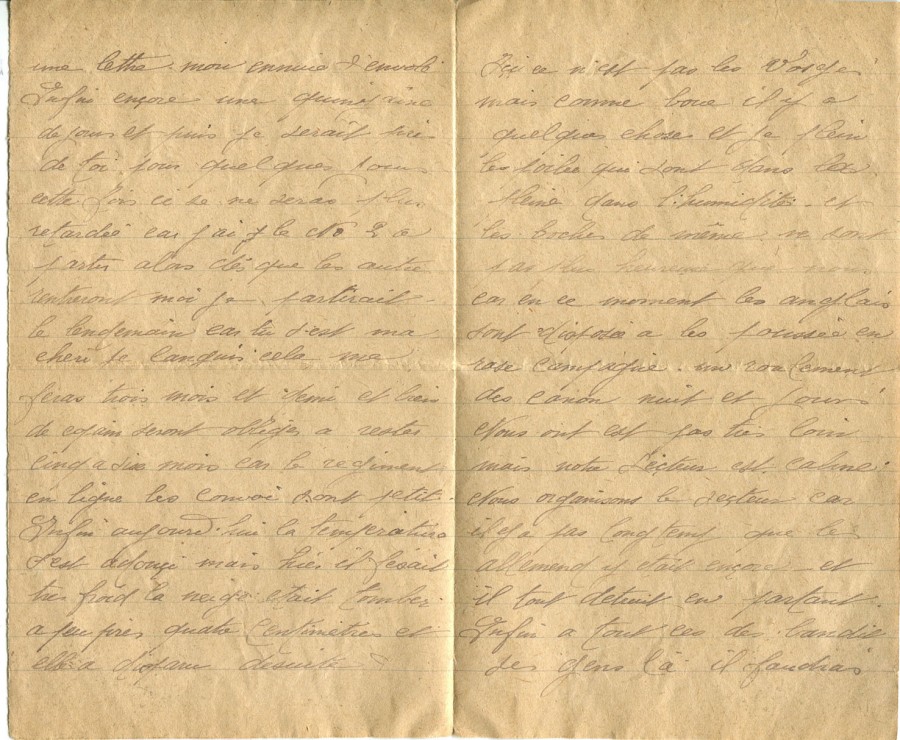 une lettre. mon ennuie s'envole
Enfin encore une quinzaine
de jours et puis je serait près
de toi pour quelques jours
cette fois ci je ne seras plus
retardée car j'ai le No 2 a
partir alors dès que les autre
rentreront moi je partirait
le lendemain car tu s'est ma
cheri je languis cela me
feras trois mois et demi et bien
de copain seront obliges a rester
cinq a six mois car le regiment
en ligne les convoi sont petit.
Enfin aujourd'hui la température
s'est adouci mais hier il fesait
tres froid la neige etait tomber
a peu pres quatre centimetres et
elle a disparu desuite
Ici ce n'est pas les Vosges
mais comme boue il y a
quelques chose et je plein
les poilus qui sont dans les
pleine dans l'humidité. et
les boches de même ne sont
pas plus heureux que nous
car en ce moment les anglais
sont disposée a les poussée en
rase campagne. un roulement
des canon nuit et jours
Nous ont est pas très loin
mais notre secteur est calme.
Nous organisons le secteur car
il y a pas longtemp que les
allemend y était encore et
il tout detruit en partant.
Enfin a tout ces des bandit
des gens là il faudras